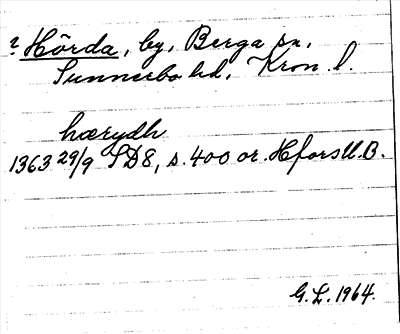 ? Hörda, by, Berga sn,
Sunnerbo hd, Kron. l.
hærydh
1363 29/9 SD8, s. 400 or. Hfors U.B.
G. L. 1964.